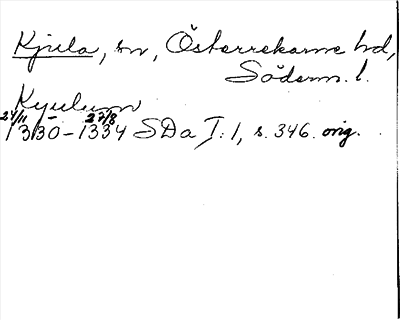 Kjula, sn, Österrekarne hd,
Söderm. l.
Kyulum
24/11 1330-27/8 1334 SDa I:1, s. 346. orig.